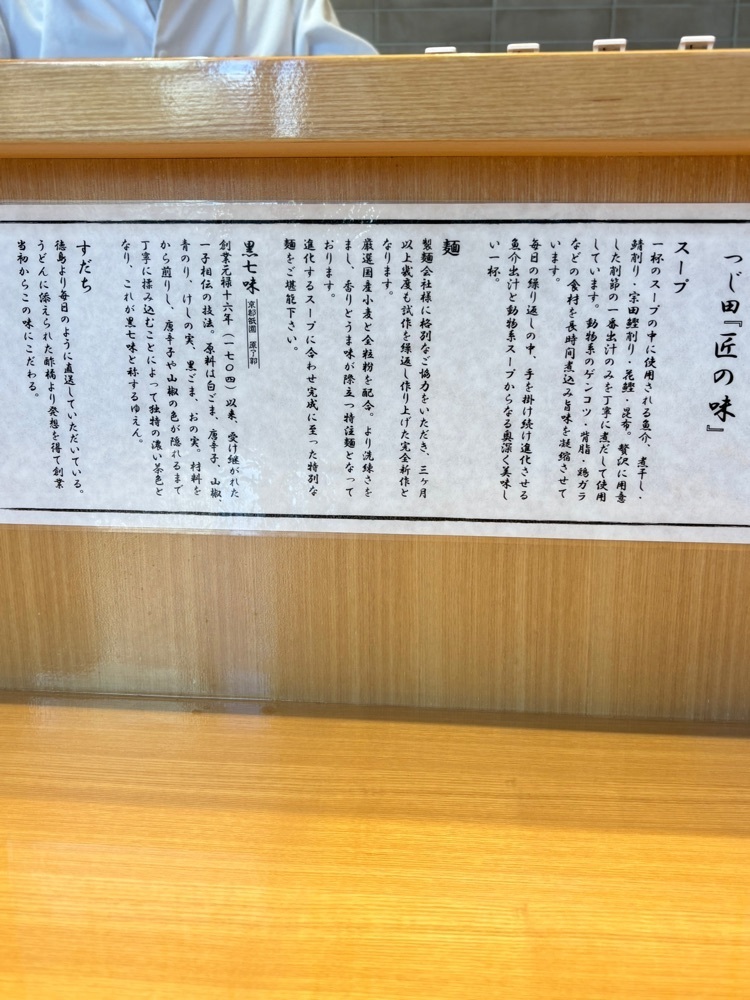 つじ田『匠の味』
スープ
一杯のスープの中に使用される魚介、煮干し・
鯖削り・宗田鰹削り・花鰹・昆布。贅沢に用意
した削節の一番出汁のみを丁寧に煮だして使用
しています。動物系のゲンコツ・背脂・鶏ガラ
などの食材を長時間煮込み旨味を凝縮させて
います。
毎日の繰り返しの中、手を掛け続け進化させる
魚介出汁と動物系スープからなる奥深く美味し
い一杯。
麺
製麺会社様に格別なご協力をいただき、三ヶ月
以上幾度も試作を繰返し作り上げた完全新作と
なります。
厳選国産小麦と全粒粉を配合。より洗練さを
まし、香りとうま味が際立つ特注麺となって
おります。
進化するスープに合わせ完成に至った特別な
麺をご堪能下さい。
黒七味 京都祇園 原了郭
創業元禄十六年（一七〇四）以来、受け継がれた
一子相伝の技法。原料は白ごま、唐辛子、山椒、
青のり、けしの実、黒ごま、おの実。材料を
から煎りし、唐辛子や山椒の色が隠れるまで
丁寧に揉み込むことによって独特の濃い茶色と
なり、これが黒七味と称するゆえん。
すだち
徳島より毎日のように直送していただいている。
うどんに添えられた酢橘より発想を得て創業
当初からこの味にこだわる。